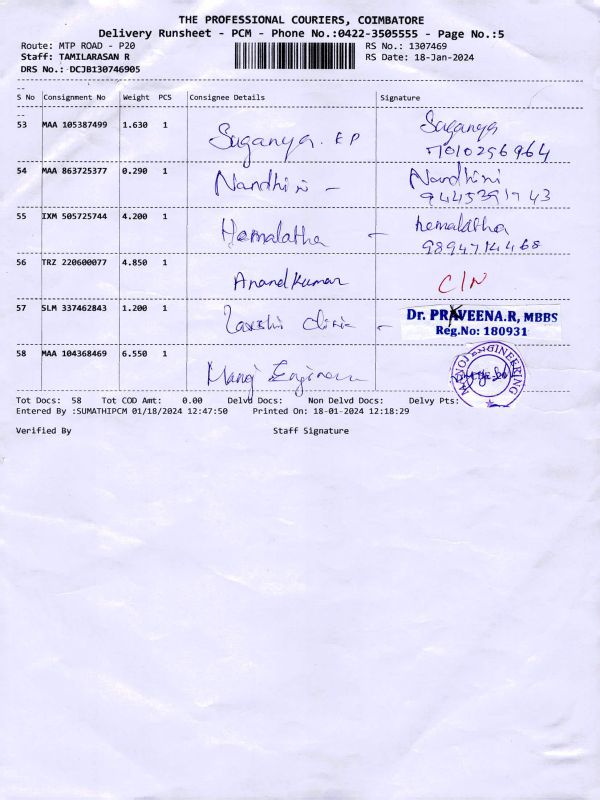 THE PROFESSIONAL COURIERS, COIMBATORE
Delivery Runsheet - PCM - Phone No.:0422-3505555 - Page No.:5
Route: MTP ROAD - P20
RS No.: 1307469
Staff: TAMILARASAN R
RS Date: 18-Jan-2024
DRS No.: DCJB130746905
--
S No Consignment No Weight PCS Consignee Details Signature
--
53 MAA 105387499 1.630 1 Suganya. E P Suganya
7010256964
54 MAA 863725377 0.290 1 Nandhini - Nandhini
55 IXM 505725744 4.200 1 Hemalatha - hemalatha
9894714468
56 TRZ 220600077 4.850 1 Anandkumar C/N
57 SLM 337462843 1.200 1 clinic - Dr. PRAVEENA.R, MBBS
Reg.No: 180931
58 MAA 104368469 6.550 1 Manoj Engineer MANOJ ENGINEERING
Tot Docs: 58 Tot COD Amt: 0.00 Delvd Docs: Non Delvd Docs: Delvy Pts:
Entered By :SUMATHIPCM 01/18/2024 12:47:50 Printed On: 18-01-2024 12:18:29
Verified By Staff Signature